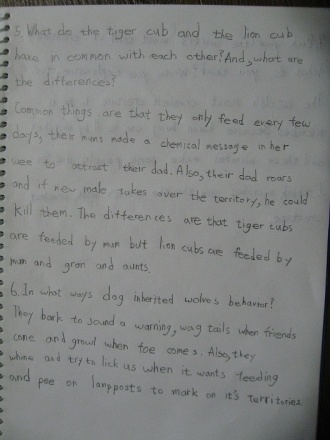 5. What do the tiger cub and the lion cub
have in common with each other? And, what are
the differences?
Common things are that they only feed every few
days, their mums made a chemical message in her
wee to attract their dad. Also, their dad roars
and if new male takes over the territory, he could
kill them. The differences are that tiger cubs
are feeded by mum but lion cubs are feeded by
mum and gran and aunts.
6. In what ways dog inherited wolves behavior?
They bark to sound a warning, wag tails when friends
come and growl when foe comes. Also, they
whine and try to lick us when it wants feeding
and pee on lampposts to mark on it's territories.